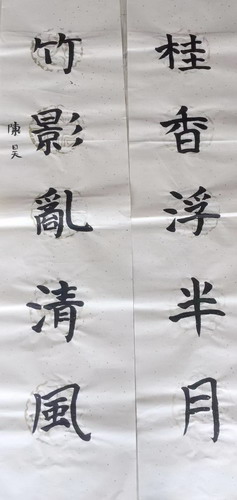 桂香浮半月
竹影亂清風
陳昊